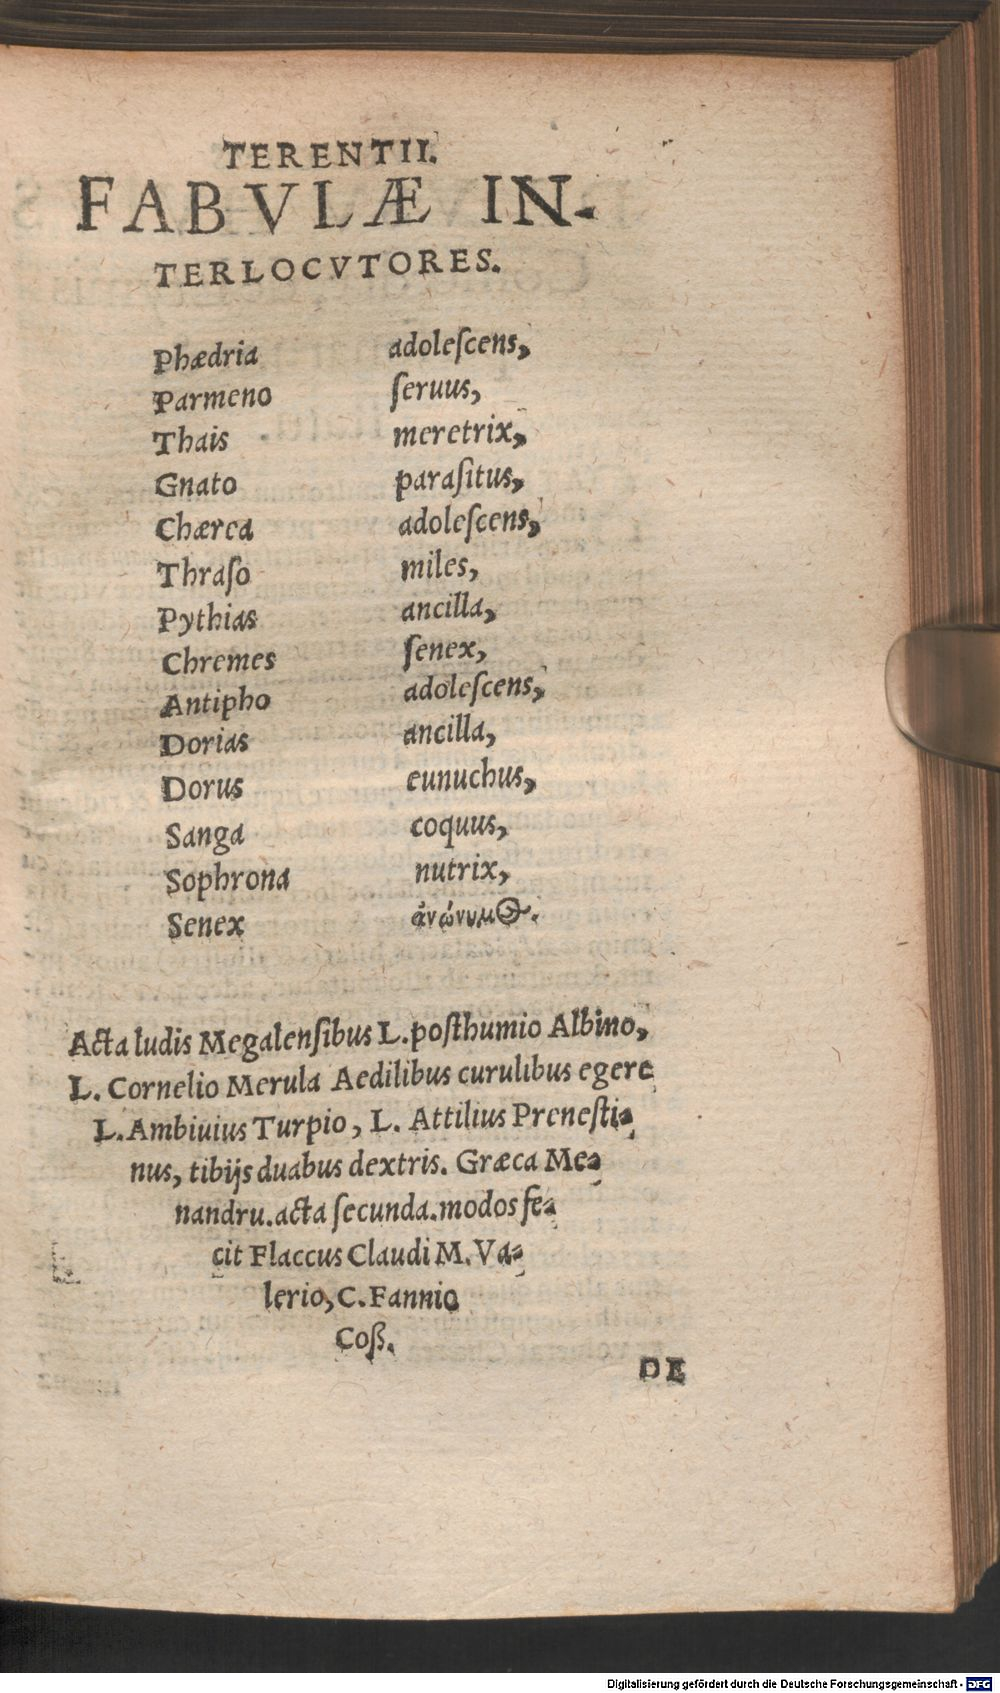 TERENTII.
FABVLÆ IN-
TERLOCVTORES.
Phædria adoleſcens,
Parmeno ſeruus,
Thais meretrix,
Gnato paraſitus,
Chærea adoleſcens,
Thraſo miles,
Pythias ancilla,
Chremes ſenex,
Antipho adoleſcens,
Dorias ancilla,
Dorus eunuchus,
Sanga coquus,
Sophrona nutrix,
Senex ἀνώνυμος.
Acta ludis Megalenſibus L. poſthumio Albino,
L. Cornelio Merula Aedilibus curulibus egere
L. Ambiuius Turpio, L. Attilius Preneſti-
nus, tibijs duabus dextris. Græca Me-
nandru. acta ſecunda. modos fe-
cit Flaccus Claudi M. Va-
lerio, C. Fannio
Coß.
DE
Digitalisierung gefördert durch die Deutsche Forschungsgemeinschaft - DFG